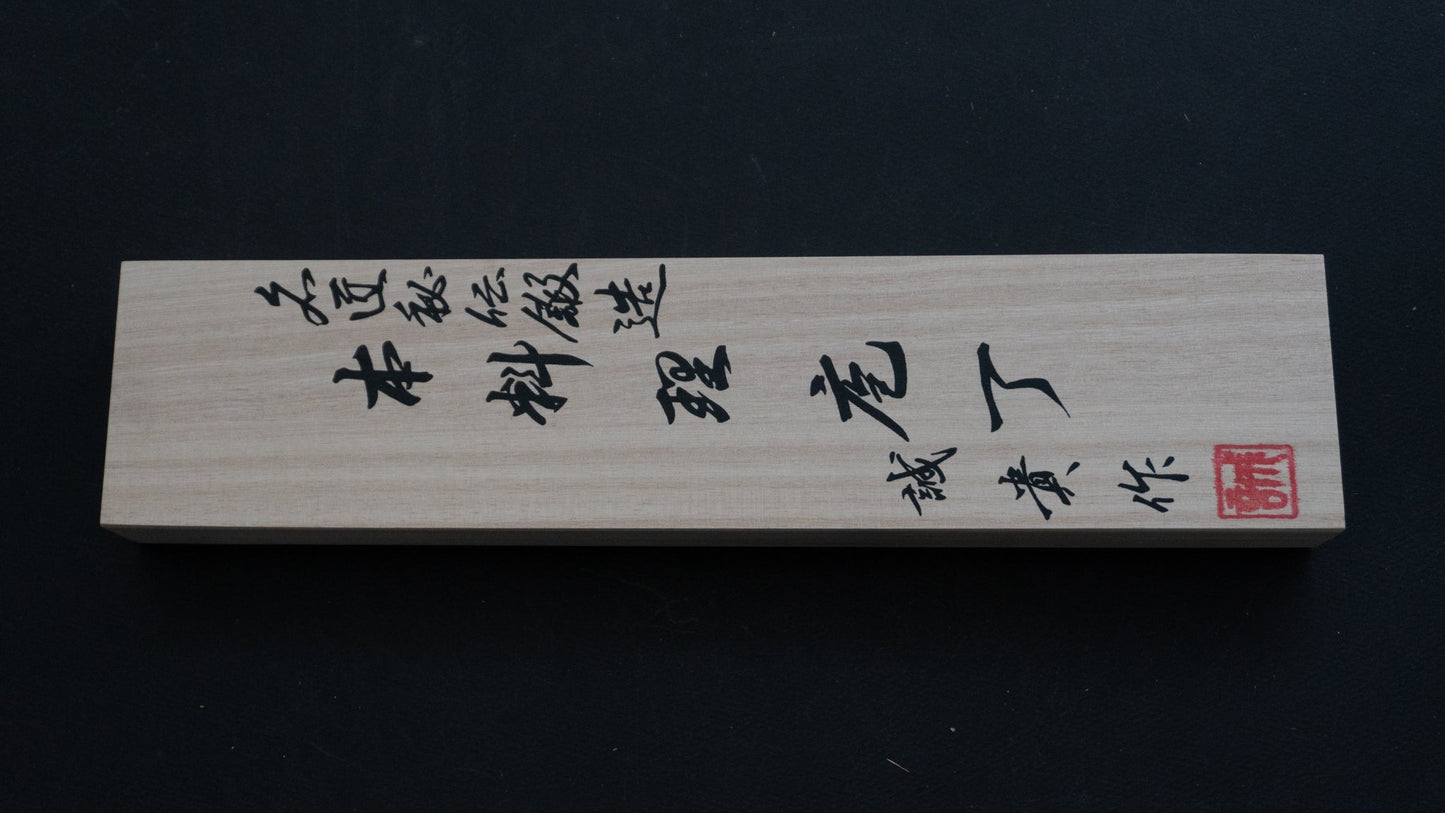 名匠秘伝鍛造
本料理庖丁
誠貴作
誠